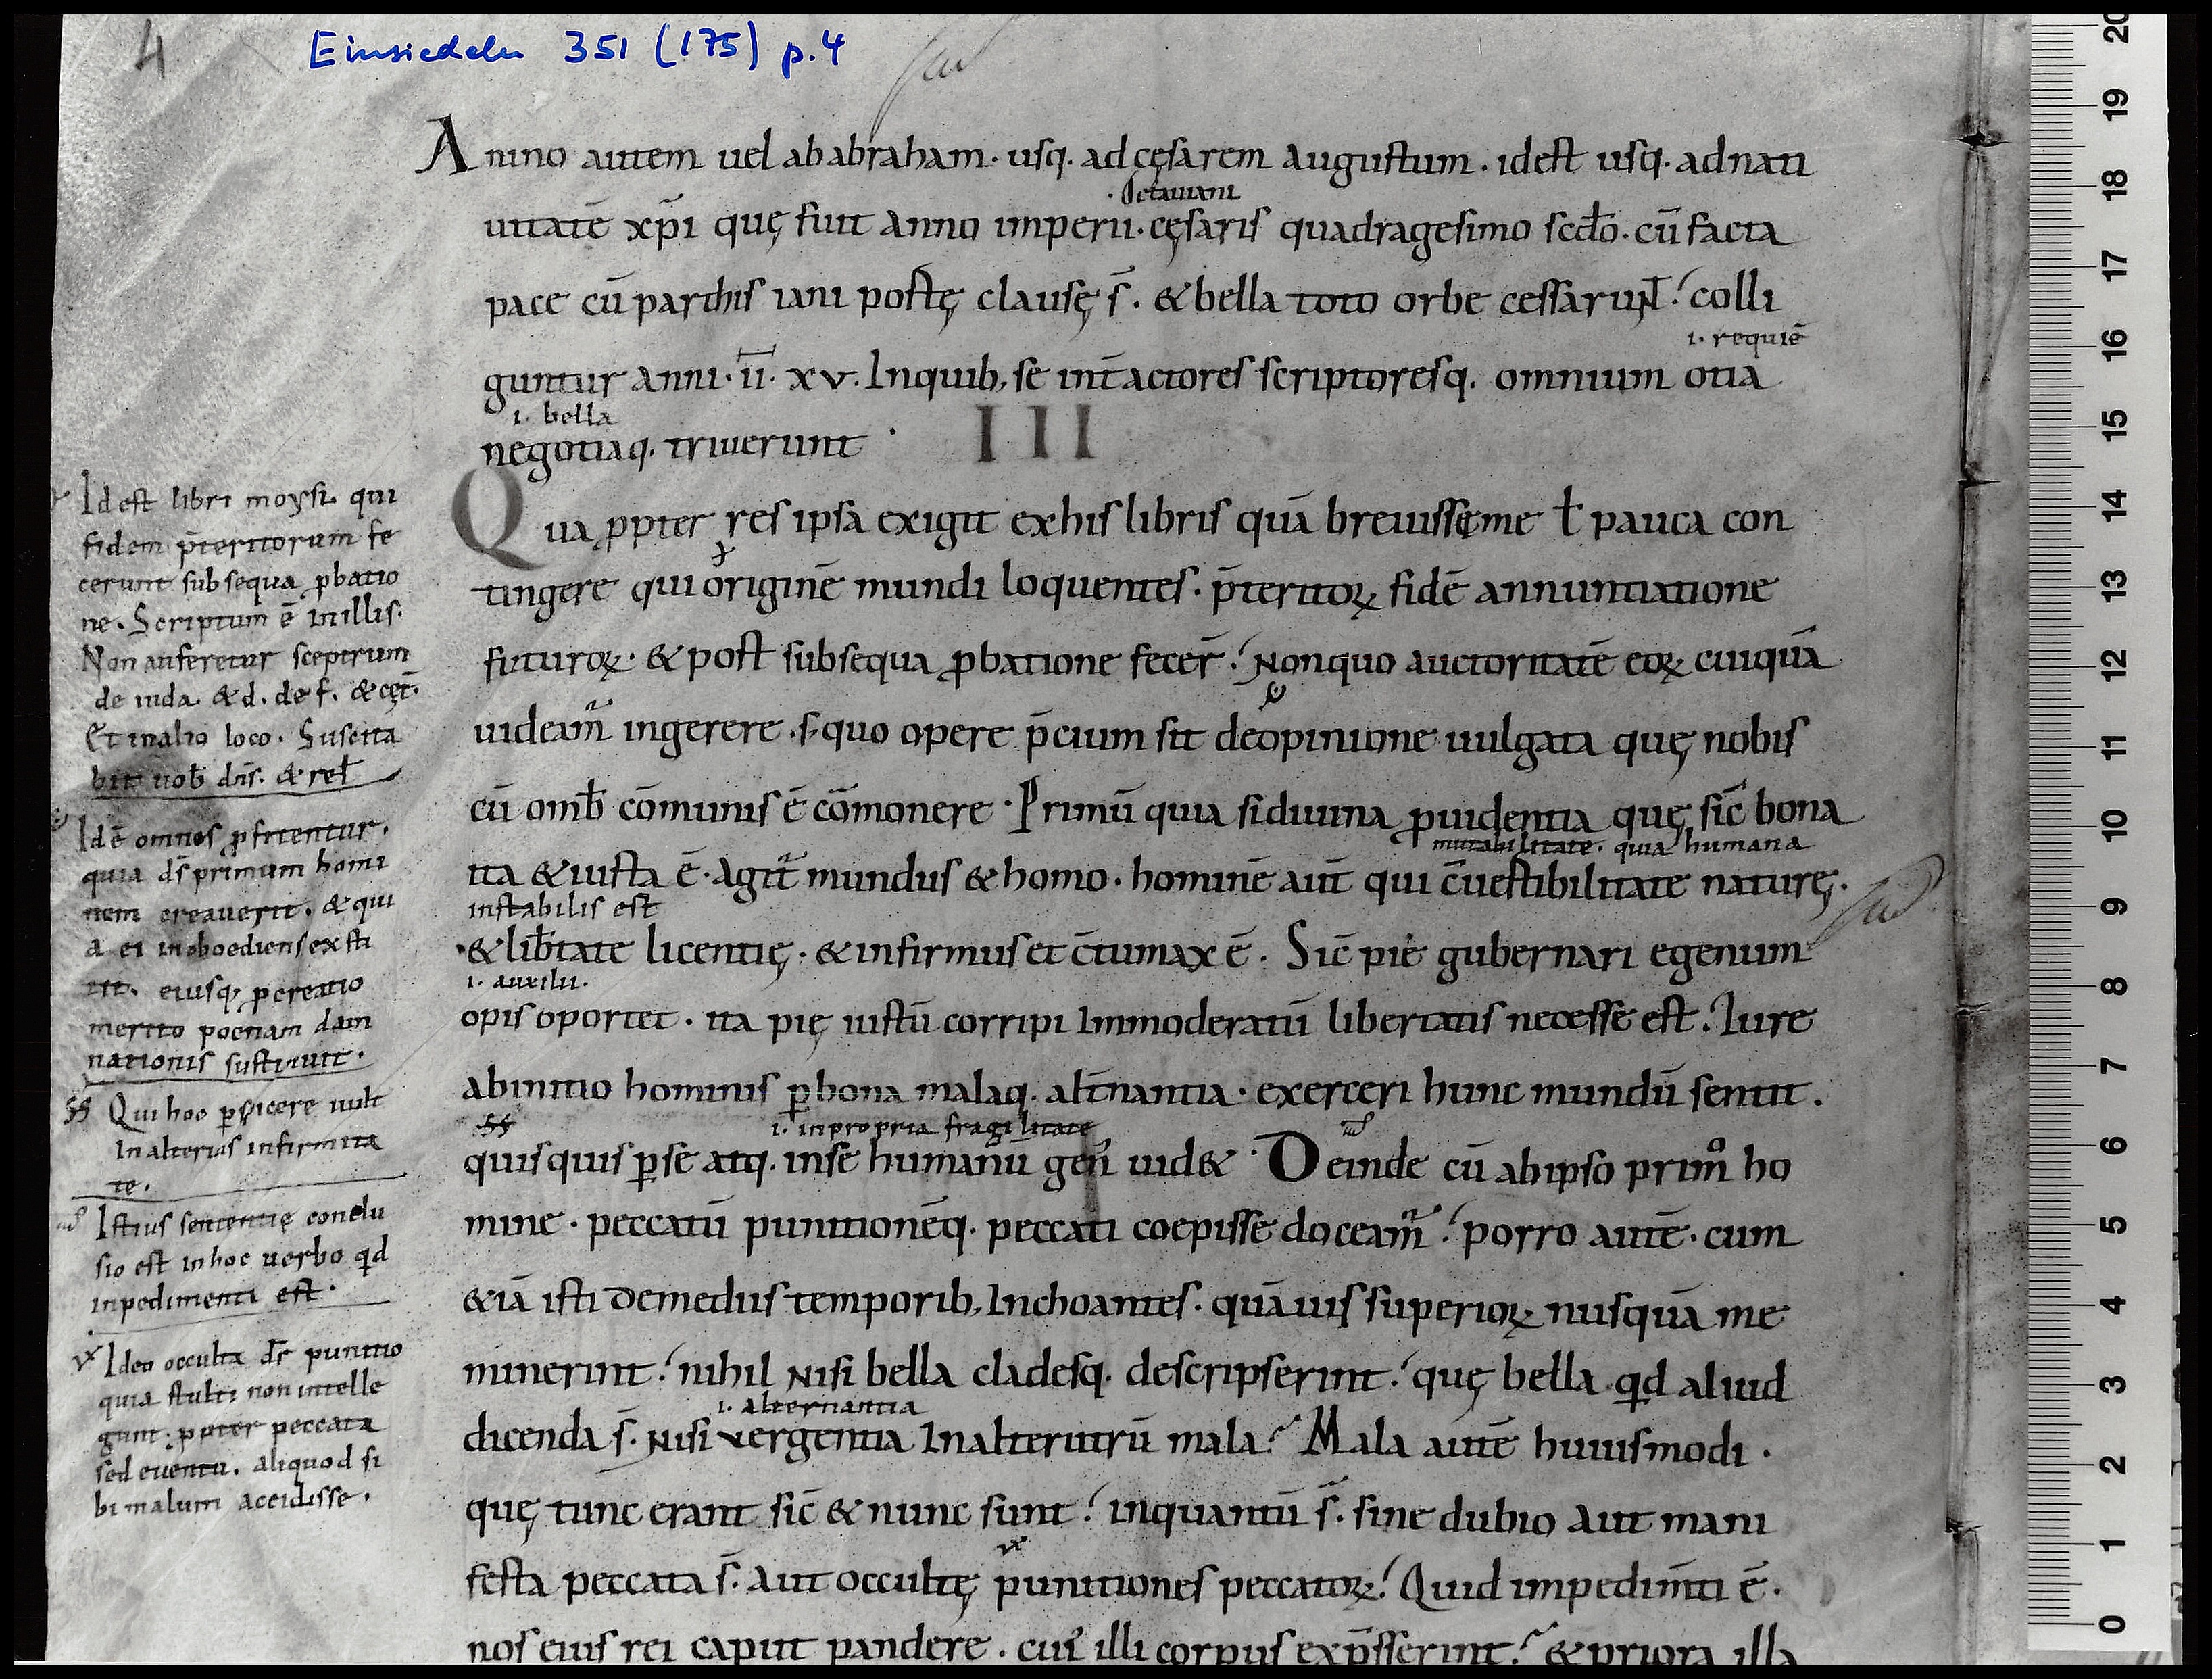 4
Einsiedeln 351 (175) p. 4
Anino autem uel ababraham· usq· ad cęsarem augustum· idest usq· adnati
·Octauiani
uitatē xp̄i quę fuit anno imperii·cęsaris quadragesimo scd̄o·cū facta
pace cū parthis iani postę clausę s̄· & bella toto orbe cessarunt̄· colli
i· requiē
guntur anni·īi· xv· Inquib; se int̄ actores scriptoresq· omnium otia
i· bella
negotiaq· triuerunt ·
III
Qua ꝓpter res ipsa exigit exhis libris quā breuissęme ł pauca con
tingere qui originē mundi loquentes· p̄teritoꝝ fidē annuntiatione
futuroꝝ· & post subsequa ꝓbatione fecer̄· Nonquo auctoritatē eoꝝ cuiquā
uideam̄ ingerere· s; quo opere p̄cium sit deopinione uulgata quę nobis
cū omib̄ cōmunis ē cōmonere· Primū quia si diuina ꝓuidentia quę sic̄ bona
ita & iusta ē· agit̄ mundus & homo· hominē aut̄ qui c̄uestibilitate naturę·
mutabilitate· quia humana
instabilis est
& lib̄tate licentię· & infirmus et c̄tumax ē· Sic̄ pie gubernari egenum
i· auxilii·
opis oportet· ita pię iustū corripi Immoderatū libertatis necesse est· Iure
abinitio hominis ꝑ bona malaq· alt̄nantia· exerceri hunc mundū sentit·
i· inpropria fragilitate
quisquis ꝑ se atq· inse humanū gen̄ uid&· Deinde cū abipso prim̊ ho
mine· peccatū punitionēq· peccati coepisse doceam̄· porro autē· cum
&iā isti demediis temporib; Inchoantes· quāuis superioꝝ nusquā me
minerint· nihil Nisi bella cladesq· descripserint· quę bella qd aliud
i· alternantia
dicenda s̄· Nisi vergentia Inalterutrū mala· Mala autē huiusmodi·
quę tunc erant sic̄ & nunc sunt· inquantū s̄· sine dubio aut mani
festa peccata s̄· aut occultę punitiones peccatoꝝ· Quid impedim̄ti ē·
nos eius rei caput pandere· cui᾽ illi corpus exp̄sserint· & priora illa
Idest libri moysi· qui
fidem p̄teritorum fe
cerunt subsequa ꝓbatio
ne· Scriptum ē inillis·
Non auferetur sceptrum
de iuda· & d· de f· & cęt̄·
Et inalio loco· Suscita
bit uob̄ dn̄s· & rel̄
Idē omnes ꝓfitentur·
quia ds̄ primum homi
nem creauerit· & qui
a ei inoboediens exsti
tit· eiusq; ꝓcreatio
merito poenam dam
nationis sustinuit·
Qui hoc ꝑspicere uult
Inalterius infirmita
te·
Istius sententię conclu
sio est inhoc uerbo qd
inpedimenti est·
Ideo occulta ds̄ punitio
quia stulti non intelle
gunt· ꝓpter peccata
sed euentu· aliquod si
bi malum accidisse·
20
19
18
17
16
15
14
13
12
11
10
9
8
7
6
5
4
3
2
1
0